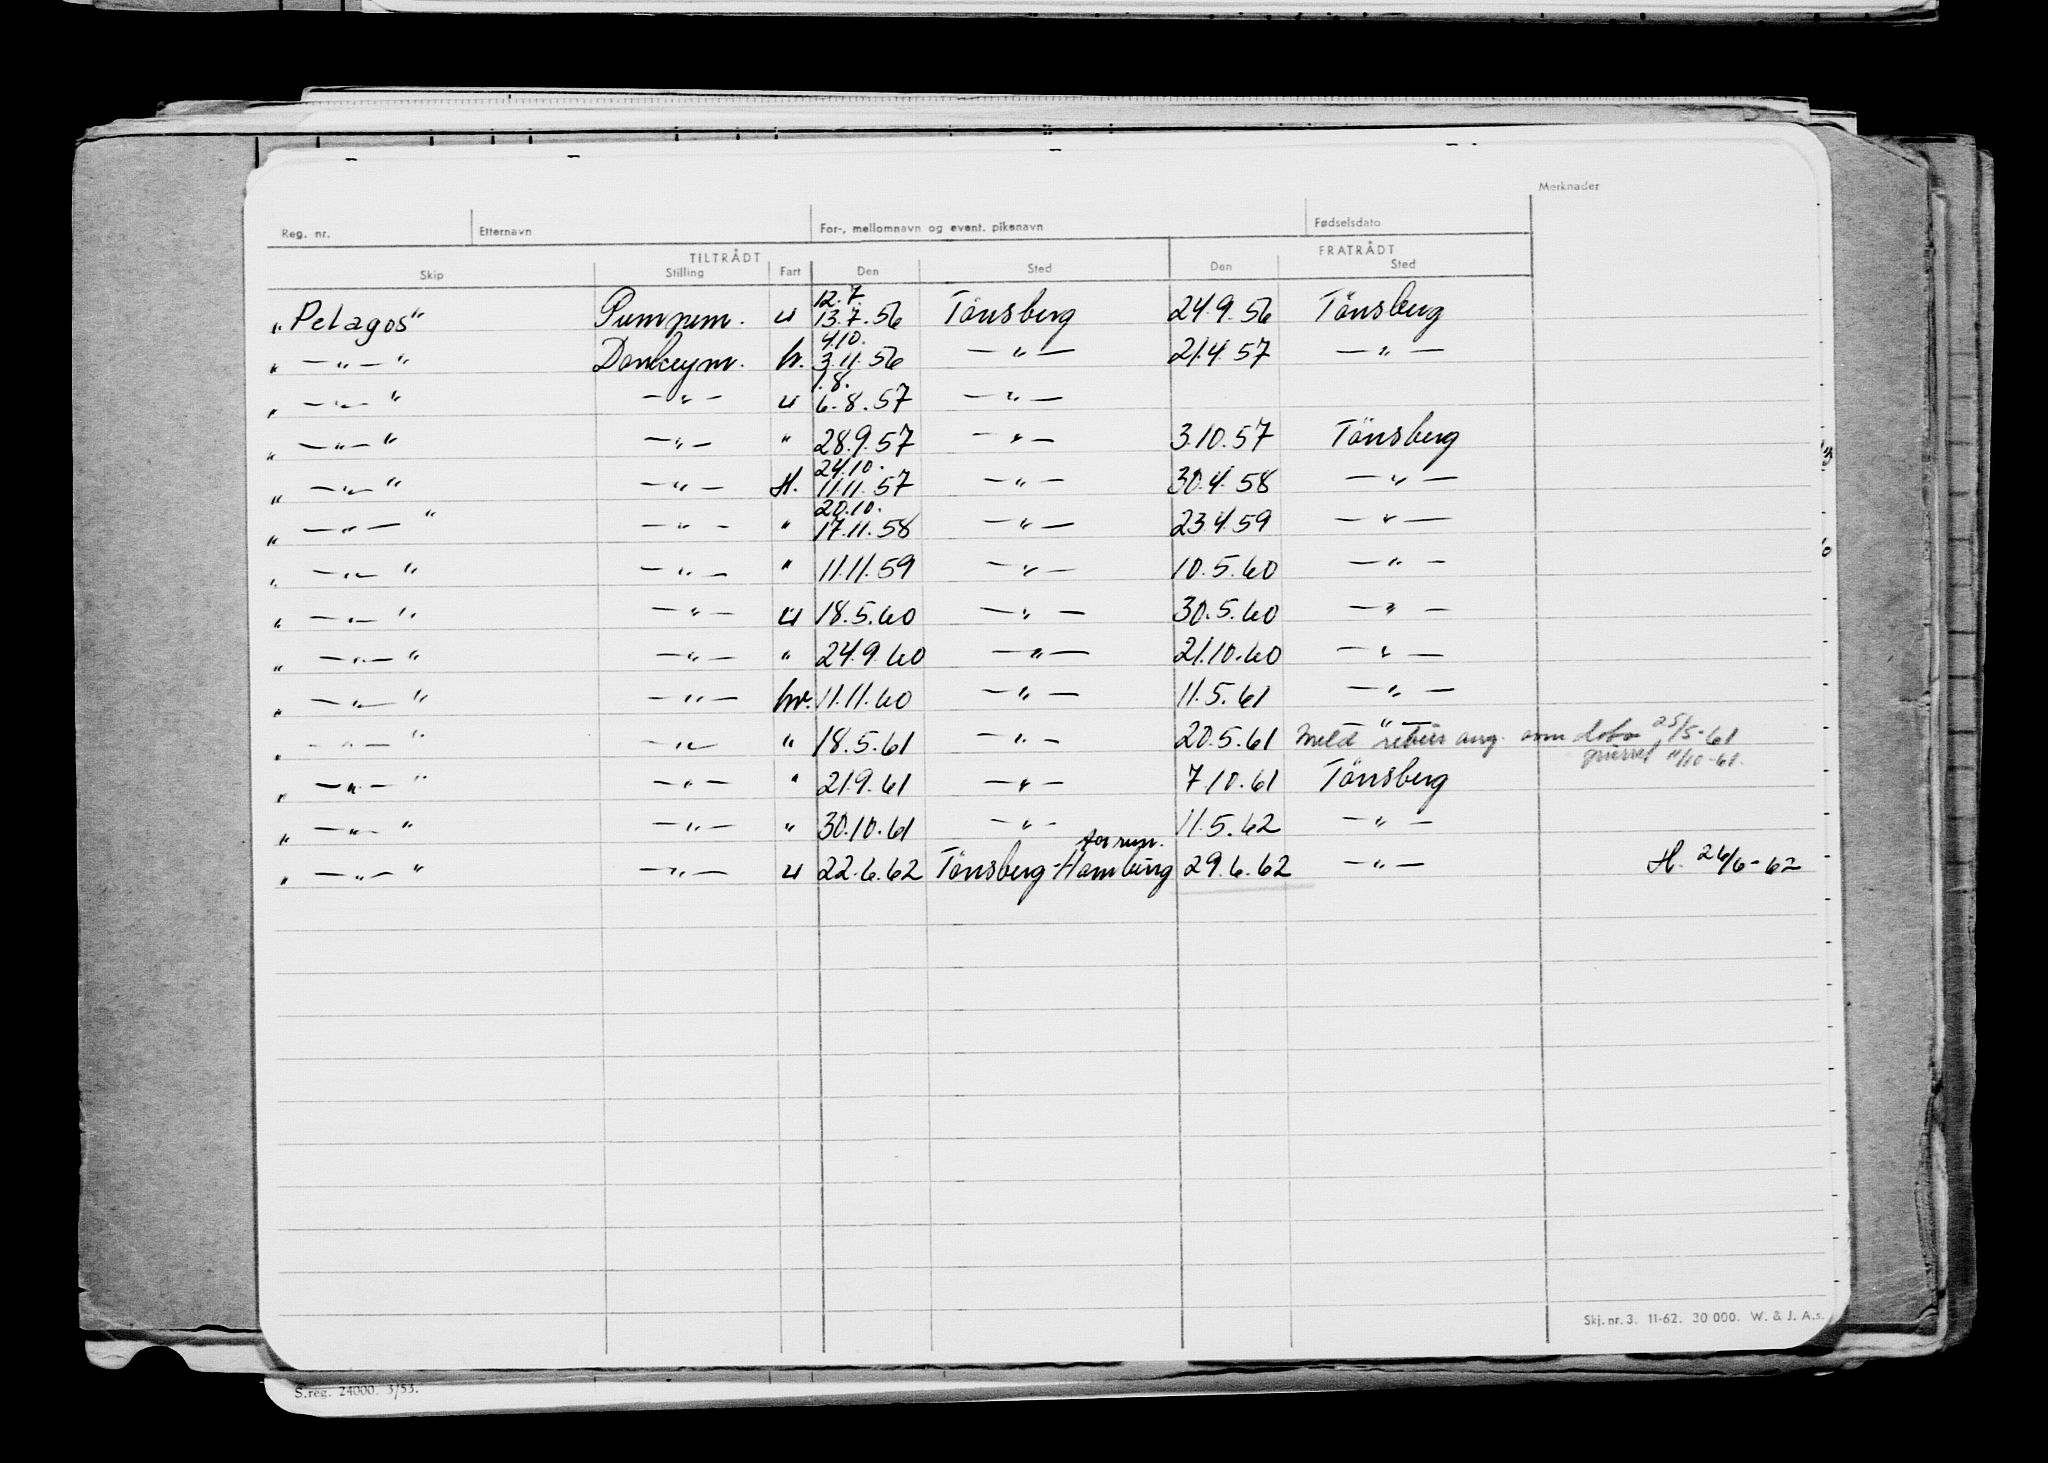 Merknader
Reg. nr. Etternavn For-, mellomnavn og event. pikenavn Fødselsdato
TILTRÅDT FRATRÅDT
Skip Stilling Fart Den Sted Den Sted
12.7.
"Pelagos" Pumpem. u 13.7.56 Tönsberg 24.9.56 Tönsberg
4.10.
" — " — " Donkeym. hv. 3.11.56 — " — 21.4.57 — " —
1.8.
" — " — " — " — u 6.8.57 — " —
" — " — " — " — " 28.9.57 — " — 3.10.57 Tönsberg
24.10.
" — " — " — " — H. 11.11.57 — " — 30.4.58 — " —
20.10.
" — " — " — " — " 17.11.58 — " — 23.4.59 — " —
" — " — " — " — " 11.11.59 — " — 10.5.60 — " —
" — " — " — " — u 18.5.60 — " — 30.5.60 — " —
" — " — " — " — " 24.9.60 — " — 21.10.60 — " —
" — " — " — " — hv. 11.11.60 — " — 11.5.61 — " —
" — " — " — " — " 18.5.61 — " — 20.5.61 — " — Meld retur ang. som 25/5-61
" — " — " — " — " 21.9.61 — " — 7.10.61 Tönsberg 11/10-61.
" — " — " — " — " 30.10.61 — " — 11.5.62 — " —
for run.
" — " — " — " — u 22.6.62 Tönsberg-Hamburg 29.6.62 — " — H. 26/6-62
Skj. nr. 3. 11-62. 30 000. W. & J. A.s.
S.reg. 24000. 3/53.